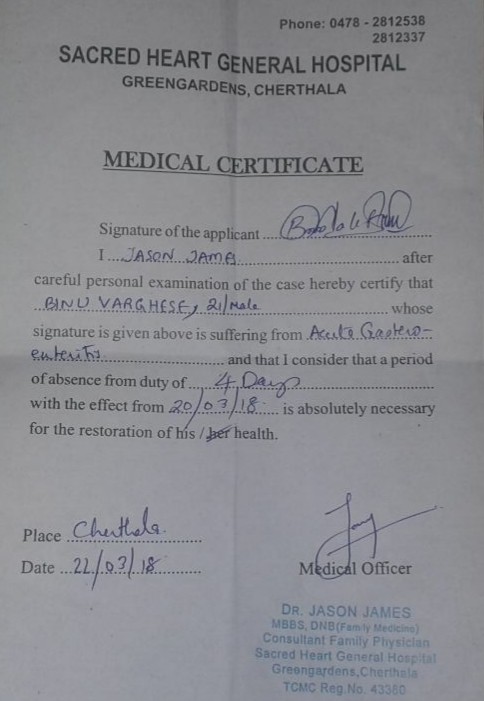 Phone: 0478 - 2812538
2812337
SACRED HEART GENERAL HOSPITAL
GREENGARDENS, CHERTHALA
MEDICAL CERTIFICATE
Signature of the applicant
I JASON JAMES after
careful personal examination of the case hereby certify that
BINU VARGHESE, 21/Male whose
signature is given above is suffering from Acute Gastero-
enteritis and that I consider that a period
of absence from duty of 4 Days
with the effect from 20/03/18 is absolutely necessary
for the restoration of his / her health.
Place Cherthala.
Date 22/03/18
Medical Officer
DR. JASON JAMES
MBBS, DNB(Family Medicine)
Consultant Family Physician
Sacred Heart General Hospital
Greengardens,Cherthala
TCMC Reg.No. 43380